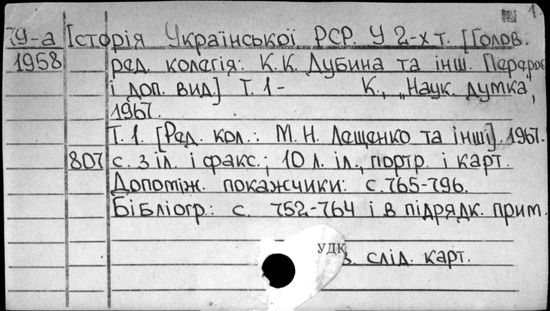 79-а Історія Української РСР. У 2-х т. [Голов. 1
1958 ред. колегія: К.К. Дубина та інш. Перероб.
і доп. вид] Т. 1- К., „Наук. думка",
1967.
Т.1. [Ред. кол.: М.Н. Лещенко та інші]. 1967.
807 с. з іл. і факс.; 10 л. іл., портр. і карт.
Допоміж. покажчики: с. 765-796.
Бібліогр.: с. 752-764 і в підрядк. прим.
УДК
слід. карт.